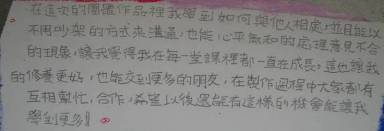 在這次的團體作品裡我學到如何與他人相處,並且能以
不用吵架的方式來溝通,也能心平氣和的處理意見不合
的現象,讓我覺得我在每一堂課裡都一直在成長,這也讓我
的修養更好,也能交到更多的朋友,在製作過程中大家都有
互相幫忙,合作,希望以後還能有這樣的機會能讓我
學到更多!